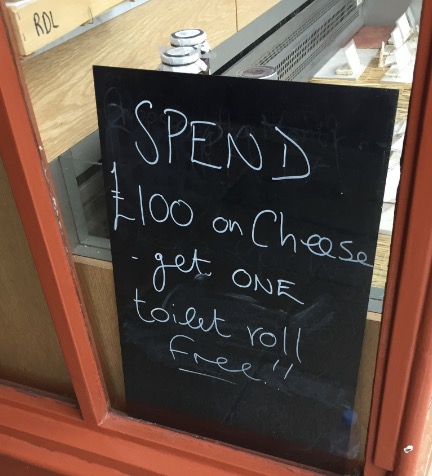 RDL
SPEND
£100 on Cheese
- get ONE
toilet roll
free!!